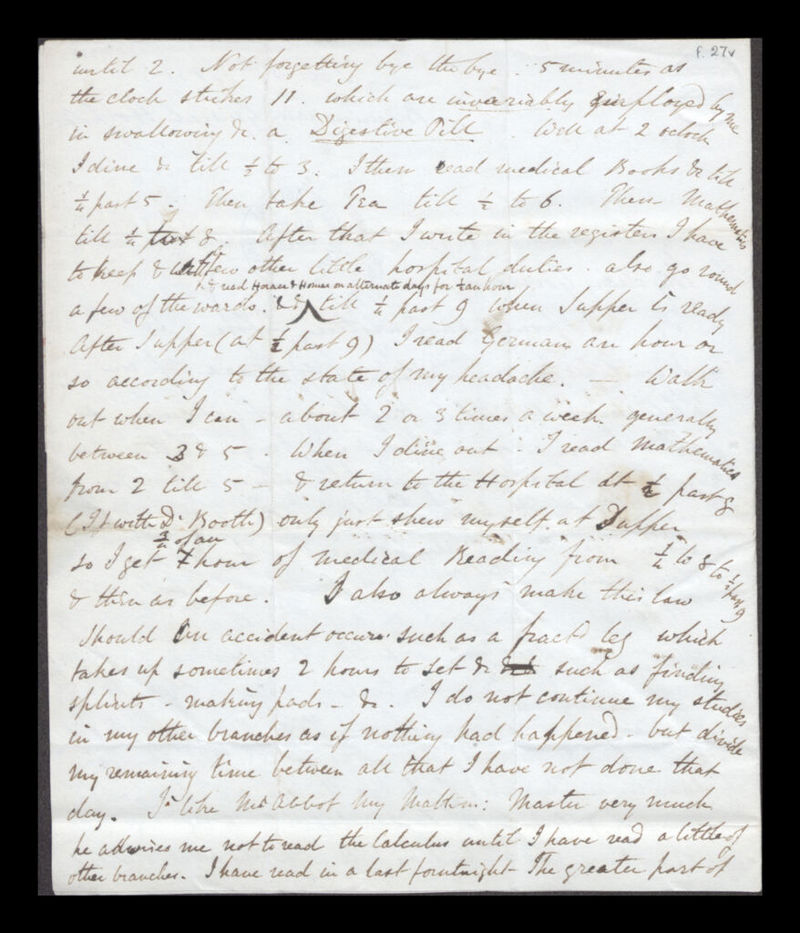 f. 27v
until 2. Not forgetting bye the bye. 5 minutes as
the clock strikes 11. which are invariably employed by me
in swallowing &c. a Digestive Pill. Well at 2 oclock
I dine &c till ½ to 3. I then read medical Books &c till
¼ past 5. Then take Tea till ½ to 6. Then Mathematics
till ¼ to 8. After that I write in the registers I have
to keep & few other little hospital duties. also go round
& read Horace & Homer on alternate days for ½ an hour
a few of the wards. &c till ¼ past 9 when Supper is ready
After Supper (at ½ past 9) I read German an hour or
so according to the state of my headache. — Walk
out when I can - about 2 or 3 times a week. generally
between 3 & 5. When I dine out - I read Mathematics
from 2 till 5 - & return to the Hospital at ½ past 8
(If with Dr Booth) only just shew myself at Supper
¾ of an
so I get hour of medical Reading from ¼ to 8 to ½ past 9
& then as before. I also always make this law
Should an accident occur such as a fractd leg which
takes up sometimes 2 hours to set &c such as finding
splints - making pads - &c. I do not continue my studies
in my other branches as if nothing had happened. but divide
my remaining time between all that I have not done that
day. I like Mr Abbot my Mathm: Master very much
he advises me not to read the Calculus until I have read a little of
other branches. I have read in a last forntnight The greater part of